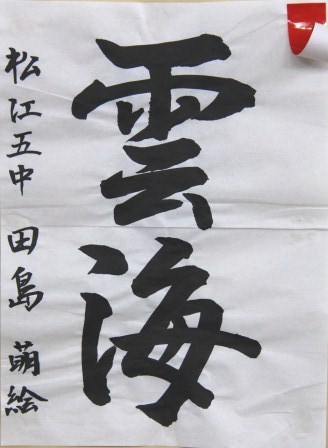 雲海
松江五中 田島 萌絵